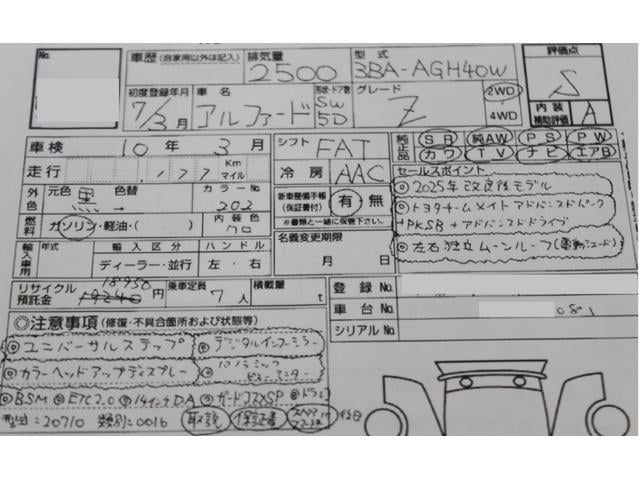 No.
車歴 (自家用以外は記入) 排気量 2500 型式 3BA-AGH40W 評価点 S
初度登録年月 7/3月 車名 アルファード 形状・ドア数 SW 5D グレード Z 2WD 4WD 内装補助評価 A
車検 10年3月 シフト FAT 純正品 SR 純AW PS PW
走行 177 Km マイル 冷房 AAC カワ TV ナビ エアB
外色 元色 黒 色替 カラーNo. 202 新車整備手帳 (保証書付) 有・無 ※書類と一緒に保管下さい。
セールスポイント
◎2025年改良後モデル
◎トヨタチームメイトアドバンスドパーク
+PKSB+アドバンスドドライブ
◎左右独立ムーンルーフ(電動シェード)
燃料 ガソリン・軽油・( ) 内装色 クロ 名義変更期限 月 日
輸入車用 年式 輸入区分 ハンドル
ディーラー・並行 左・右
リサイクル預託金 18950 19240 円 乗車定員 7人 積載量 t
登録No.
車台No. 081
シリアルNo.
◎注意事項 (修復・不具合箇所および状態等)
◎ユニバーサルステップ ◎デジタルインナーミラー
◎カラーヘッドアップディスプレー ◎パノラミックビューモニター
◎BSM ◎ETC2.0 ◎14インチDA ◎ガードコスメSP ◎ドラレコ
型指=20710 類別=0016 取説 保証書 スペアキー